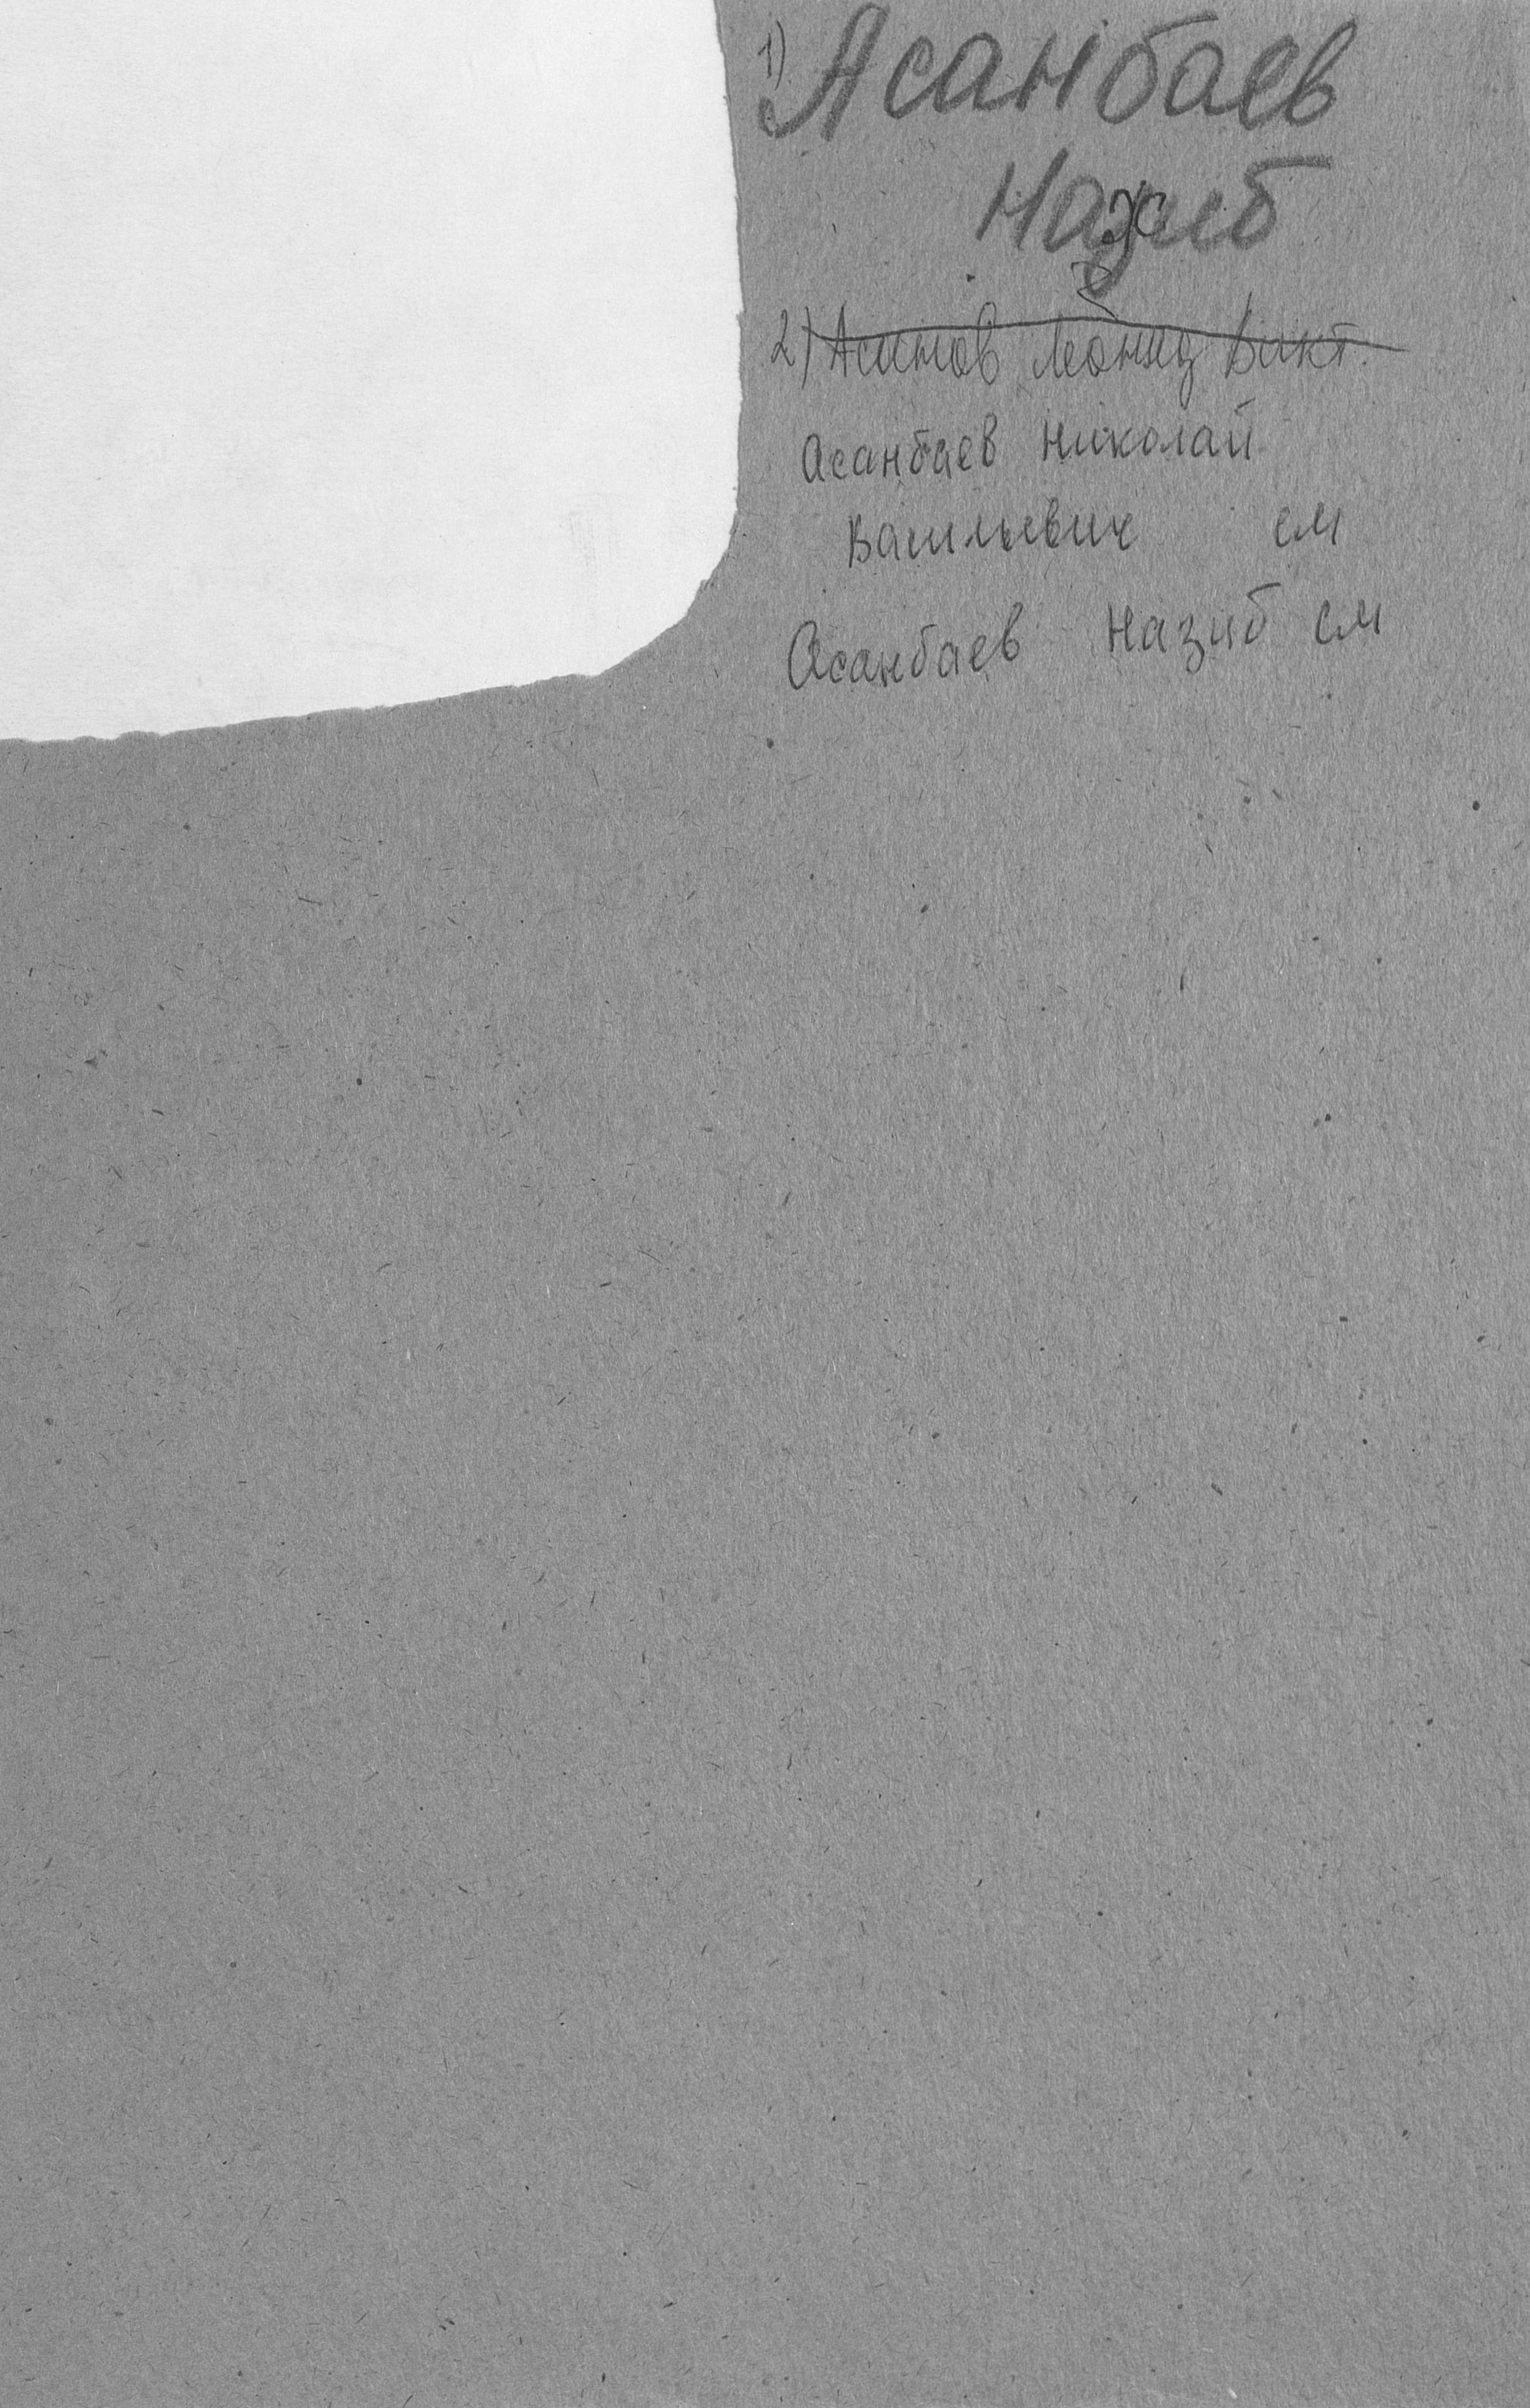 1) Асанбаев
Нажиб
з
2) Асинов Леонид Викт.
Асанбаев Николай
Васильевич ем
Асанбаев Назиб ем